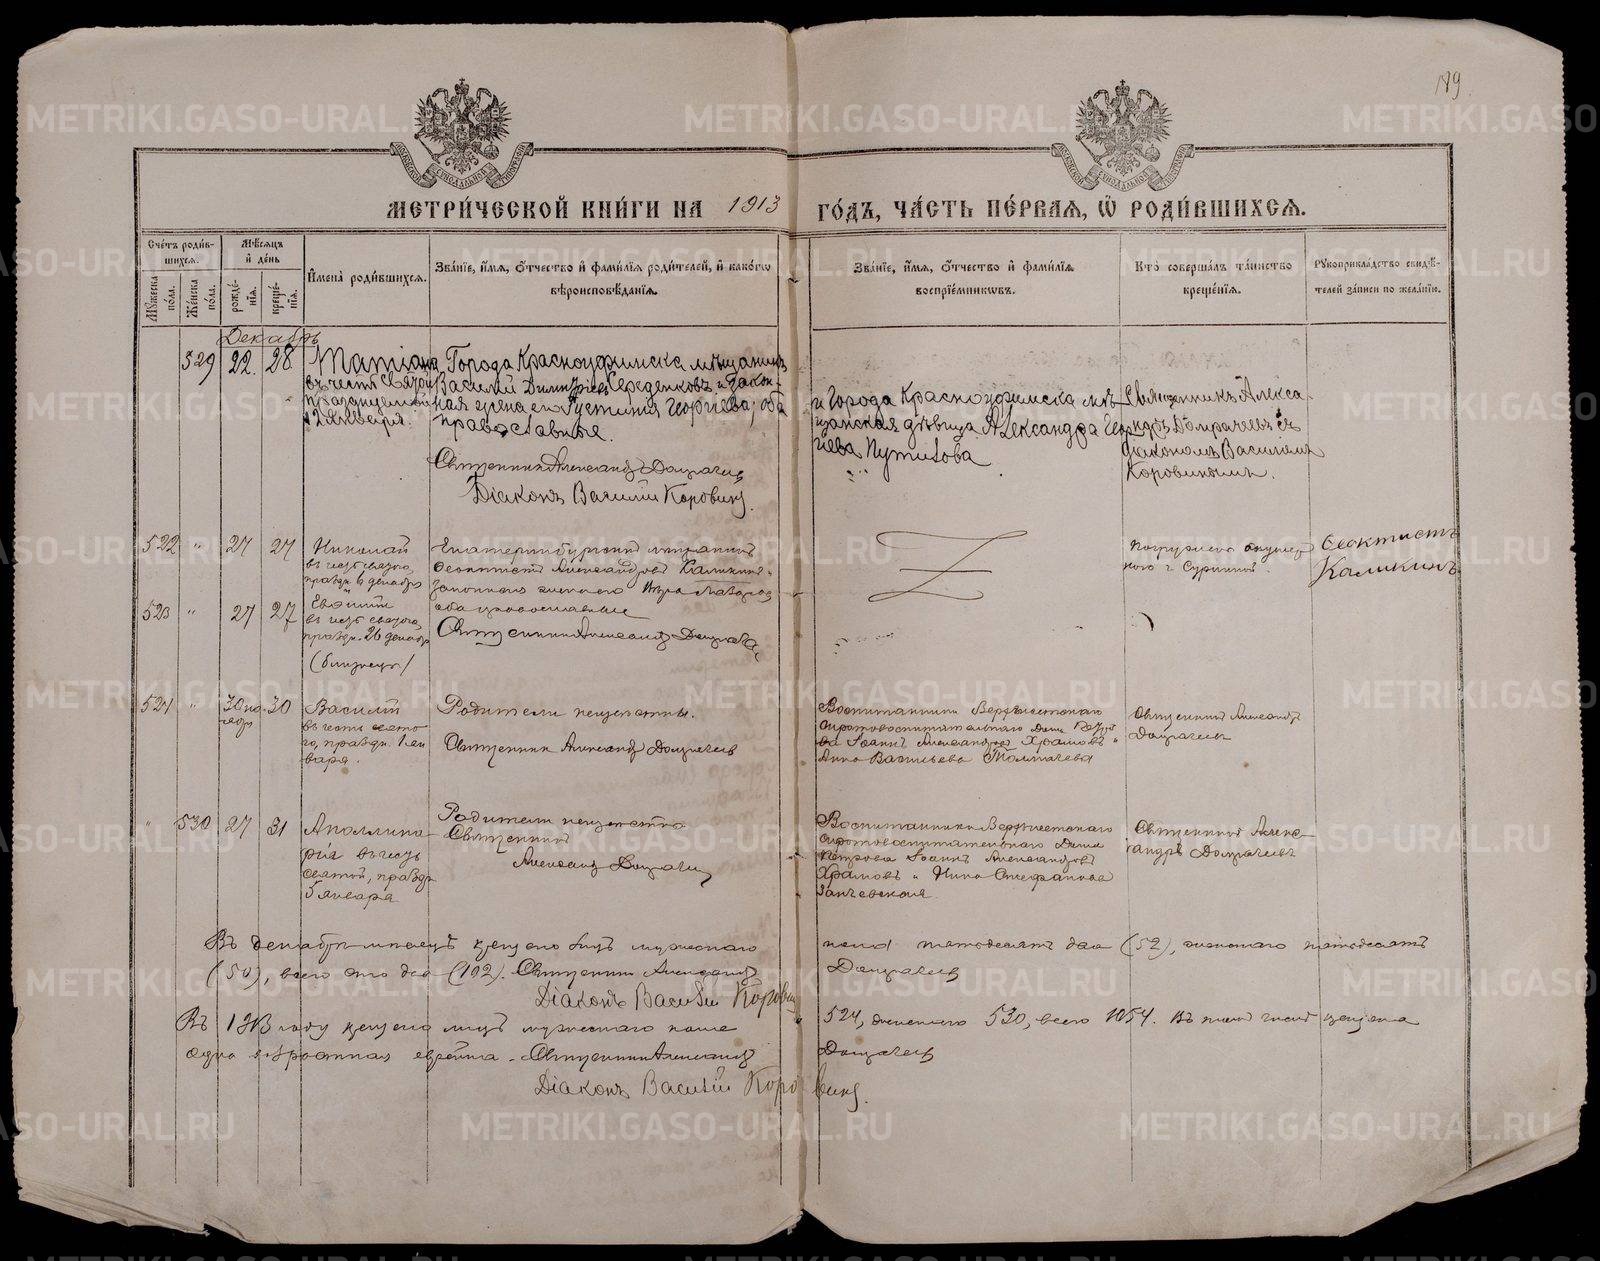 189.
МЕТРИ́ЧЕСКОЙ КНИ́ГИ НА 1913 ГО́ДЪ, ЧА́СТЬ ПЕ́РВАЯ, Ѡ РОДИ́ВШИХСЯ.
Сче́тъ роди́в-
шихся.
Мꙋ́жеска по́ла.
Же́нска по́ла.
Мѣ́сяцъ и де́нь
рожде́-
нїя.
креще́-
нїя.
Имена̀ роди́вшихся.
Зва́нїе, и́мя, ѻ́тчество и фами́лїя роди́телей, и како́гѡ
вѣроисповѣ́данїя.
Зва́нїе, и́мя, ѻ́тчество и фами́лїя
воспрїе́мникѡвъ.
Кто̀ соверша́лъ та́инство
креще́нїя.
Рꙋкоприкла́дство свидѣ́-
телей за́писи по жела́нїю.
Декабрь
329 22. 28
въ честь святой
празднуемой
12 января.
Города Красноуфимска мѣщанинъ
Василий Димитріевъ Середенковъ и закон-
ная жена его Устинія Георгіева, оба
православные.
Священникъ Александръ Домрачевъ
Діаконъ Василій Коровинъ.
и Города Красноуфимска мѣ-
щанская дѣвица Александра Геор-
гіева Путилова
Священникъ Алекса-
ндръ Домрачевъ съ
діакономъ Василіемъ
Коровинымъ.
522 " 27 27 Николай
въ честь святого,
праздн. 6 декабря
Екатеринбургскій мѣщанинъ
Ѳеоктистъ Александровъ Каликинъ и
законная жена его
оба православные
Священникъ Александръ Домрачевъ
Ѳеоктистъ
Каликинъ
523 " 27 27 Евѳимій
въ честь святого,
праздн. 26 декабря
(близнецы)
524 " 30 но-
ября 30
Василій
въ честь свято-
го, праздн. 1 ян-
варя.
Родители неизвѣстны.
Священникъ Александръ Домрачевъ
Воспитанники Верхъисетскаго
сиротовоспитательнаго Дома
Іоаннъ Александровъ Храмовъ и
Анна Васильева Толмачева
Священникъ Александръ
Домрачевъ
" 530 27 31 Аполлина-
рія въ честь
святой, праздн.
5 января
Родители неизвѣстны
Священникъ
Александръ Домрачевъ
Воспитанники Верхъисетскаго
сиротовоспитательнаго Дома
Петрова Іоаннъ Александровъ
Храмовъ и Нина Стефанова
Священникъ Алекс-
андръ Домрачевъ
Въ декабрѣ мѣсяцѣ крещено лицъ мужескаго пола пятьдесятъ два (52), женскаго пятьдесятъ
(50), всего сто два (102). Священникъ Александръ Домрачевъ
Діаконъ Василій Коровинъ
Въ 1913 году крещено лицъ мужескаго пола 524, женскаго 530, всего 1054. Въ томъ числѣ крещена
одна взрослая еврейка. Священникъ Александръ Домрачевъ
Діаконъ Василій Коровинъ.
METRIKI.GASO-URAL.RU